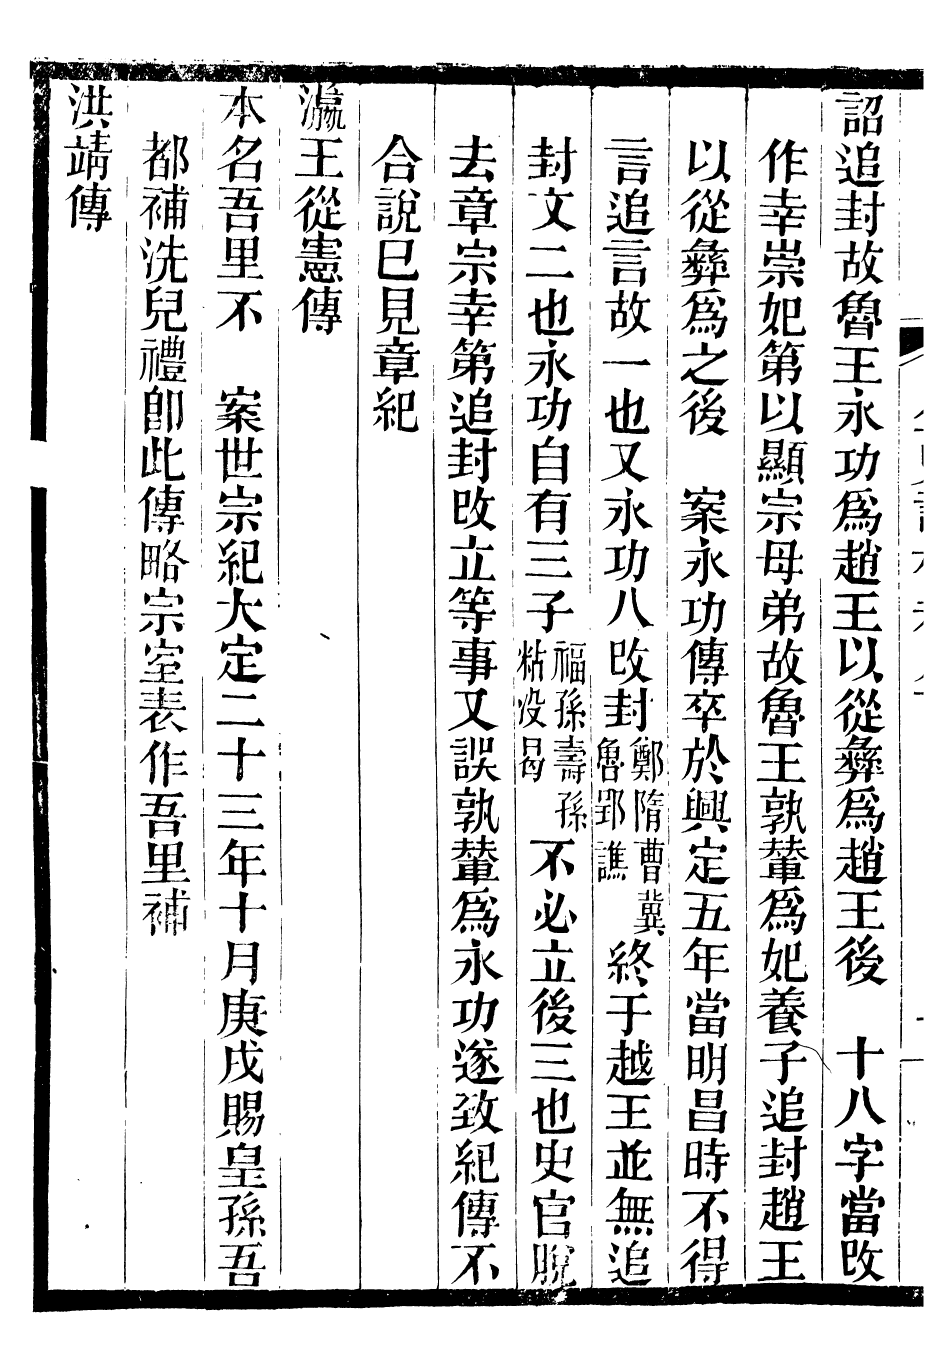 詔追封故魯王永功爲趙王以從彝爲趙王後　十八字當改
作幸崇妃第以顯宗母弟故魯王孰輦爲妃養子追封趙王
以從彝爲之後　案永功傳卒於興定五年當明昌時不得
言追言故一也又永功八改封鄭隋曹冀魯郢譙終于越王並無追
封文二也永功自有三子福孫壽孫粘没曷不必立後三也史官脫
去章宗幸第追封改立等事又誤孰輦爲永功遂致紀傳不
合說已見章紀
瀛王從憲傳
本名吾里不　案世宗紀大定二十三年十月庚戌賜皇孫吾
都補洗兒禮卽此傳略宗室表作吾里補
洪靖傳